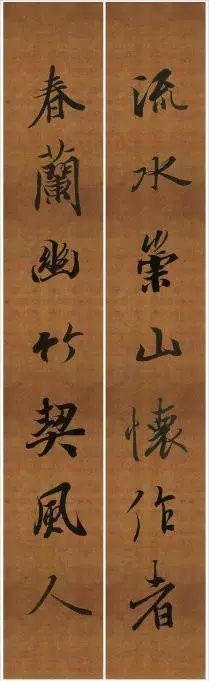 流水崇山懷作者
春蘭幽竹契風人